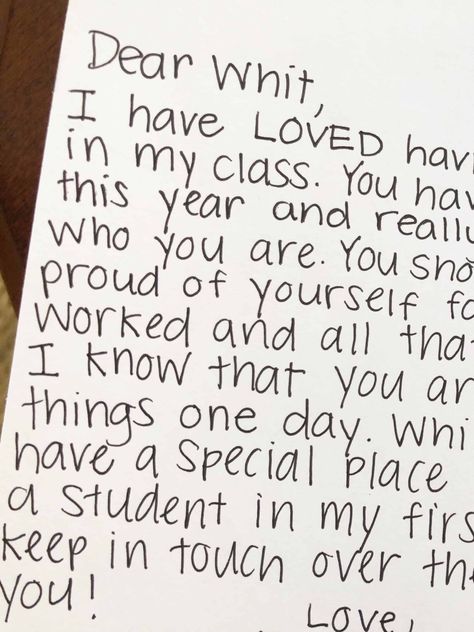 Dear Whit,
I have LOVED havi
in my class. You hav
this year and really
who you are. You sho
proud of yourself fo
worked and all that
I know that you ar
things one day. Whi
have a special place
a student in my firs
keep in touch over th
you!
Love,